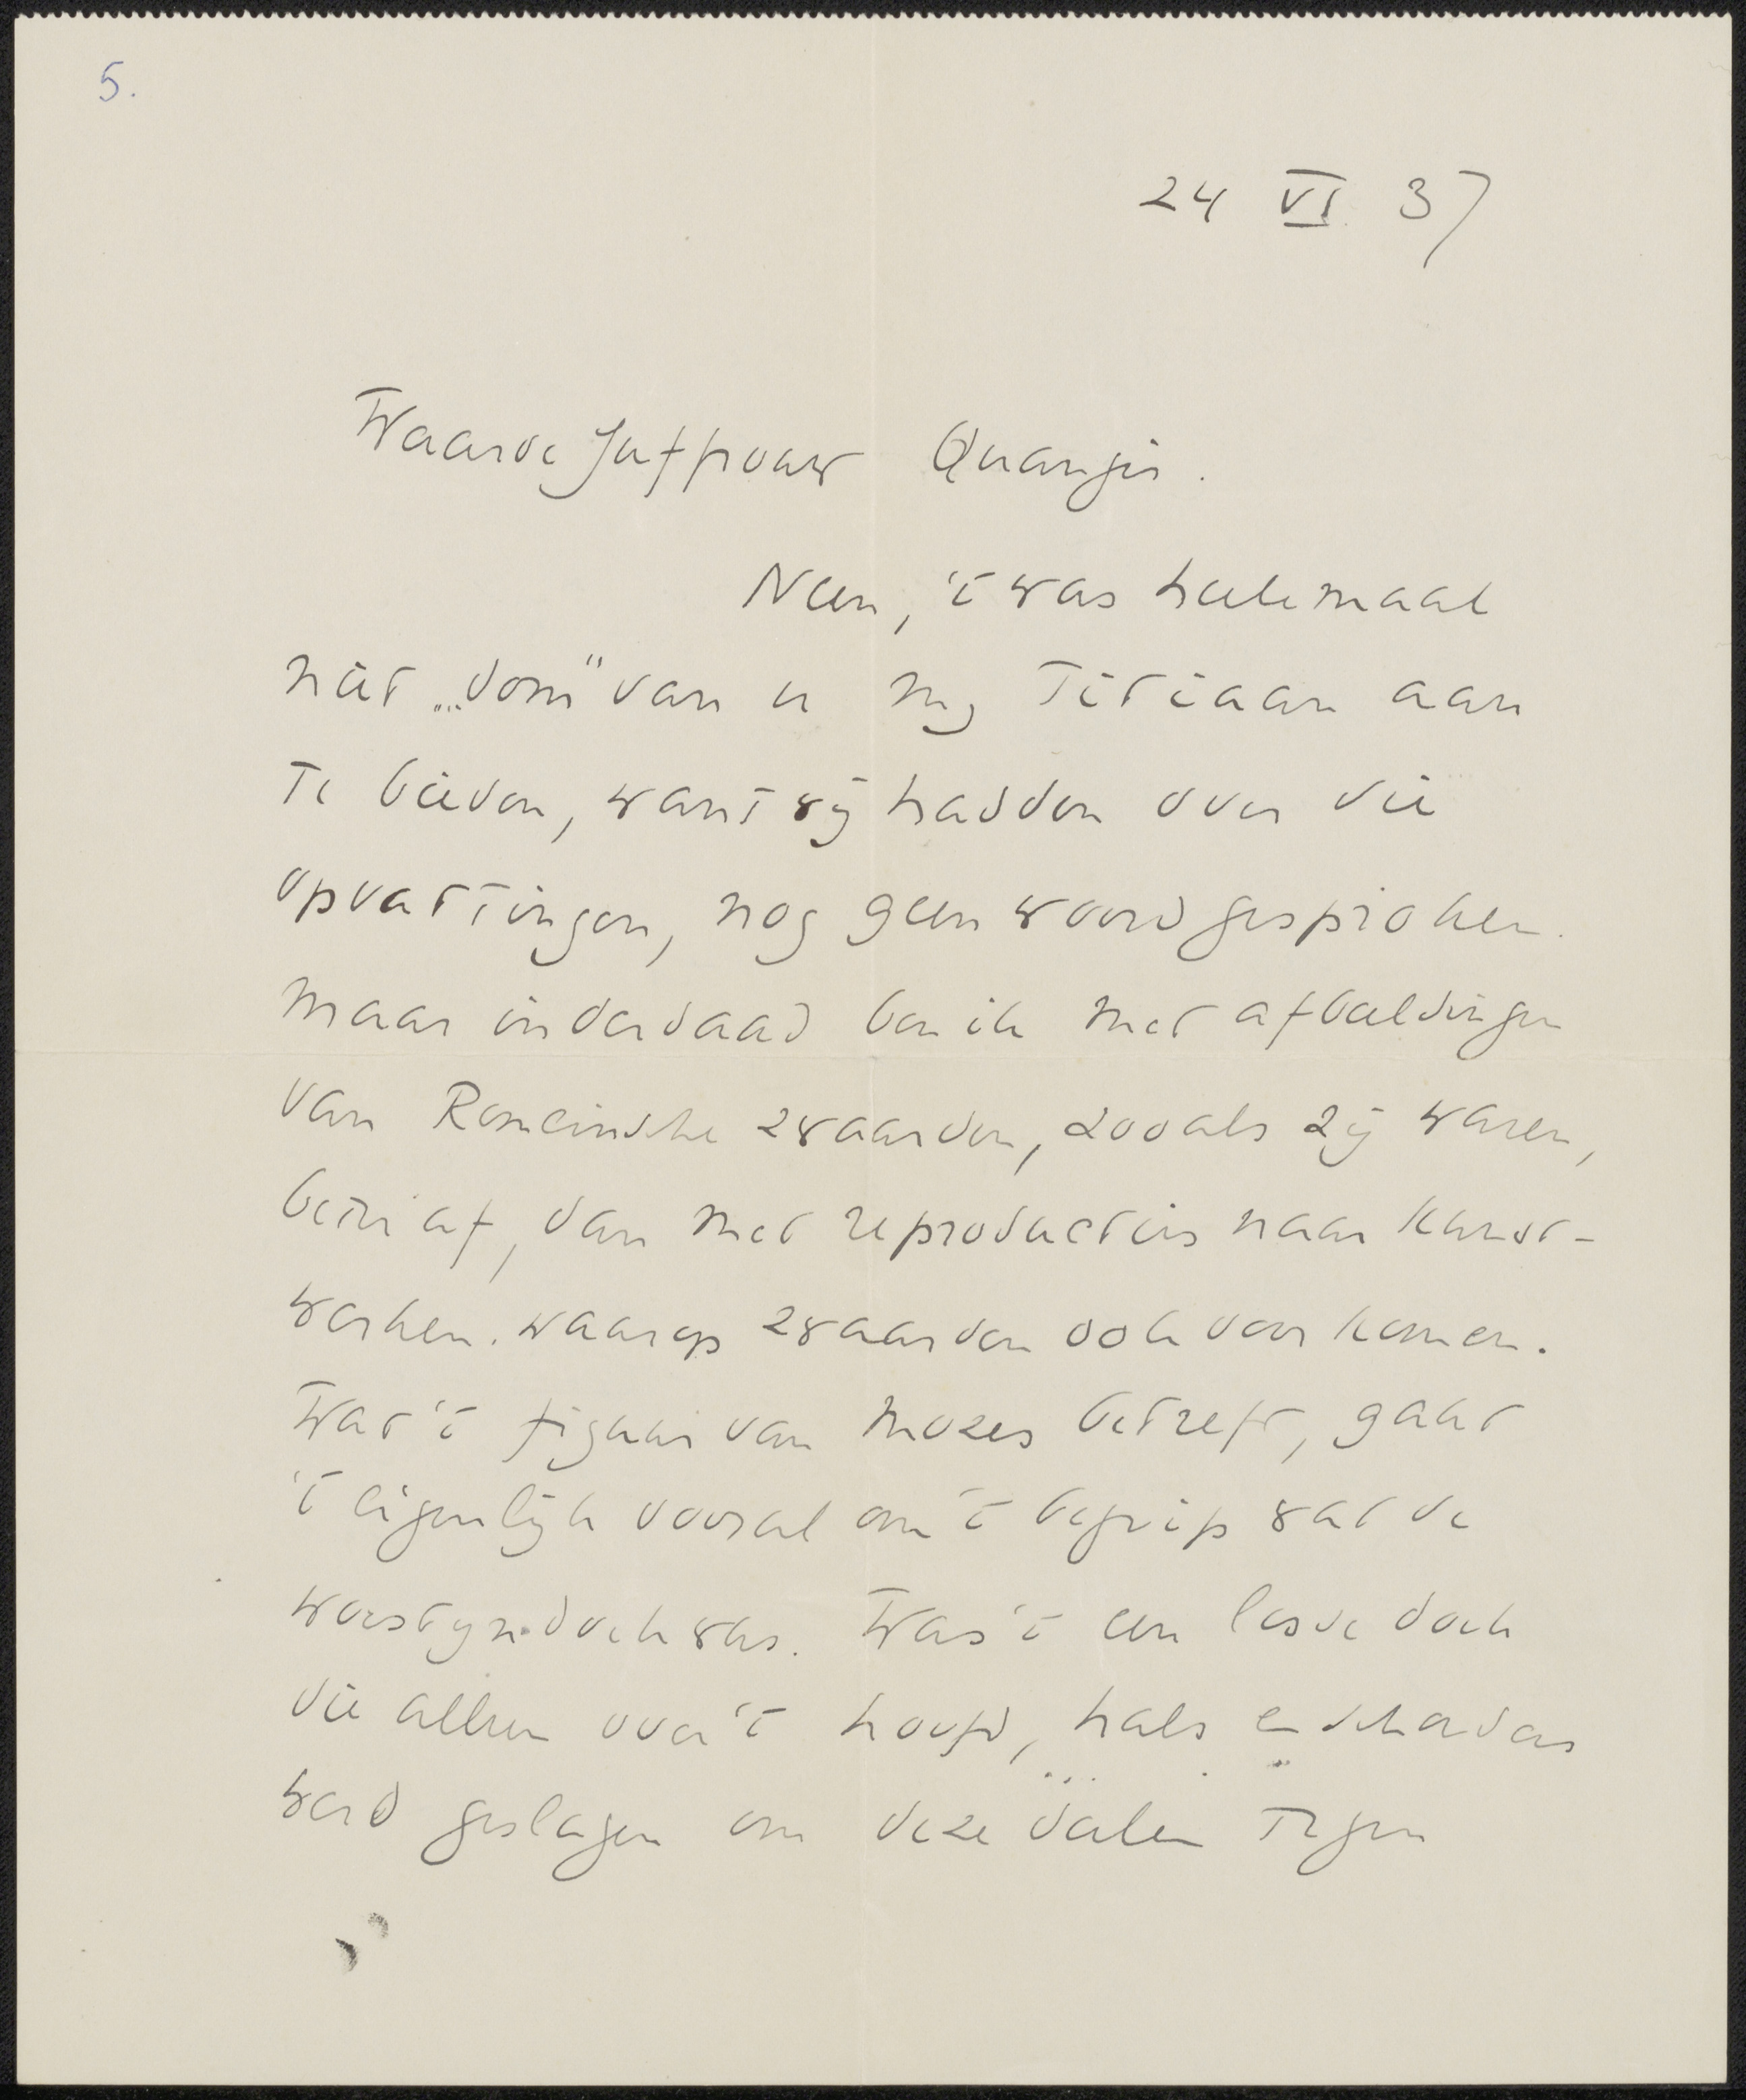 5.
24 VI 37
Waarde Juffrouw Quanjer.
Neen, 't was heelemaal
niet „dom" van u mij Titiaan aan
te bieden, want wij hadden over die
opvattingen, nog geen woord gesproken.
Maar inderdaad ben ik met afbeeldingen
van Romeinsche zwaarden, zooals zij waren,
beter af, dan met reproducties naar kunst-
werken. waarop zwaarden ook voorkomen.
Wat 't figuur van Mozes betreft, gaat
't eigenlijk vooral om 't begrip wat de
woestyndoek was. Was 't een losse doek
die alleen over 't hoofd, hals en schouders
werd geslagen om deze deelen tegen